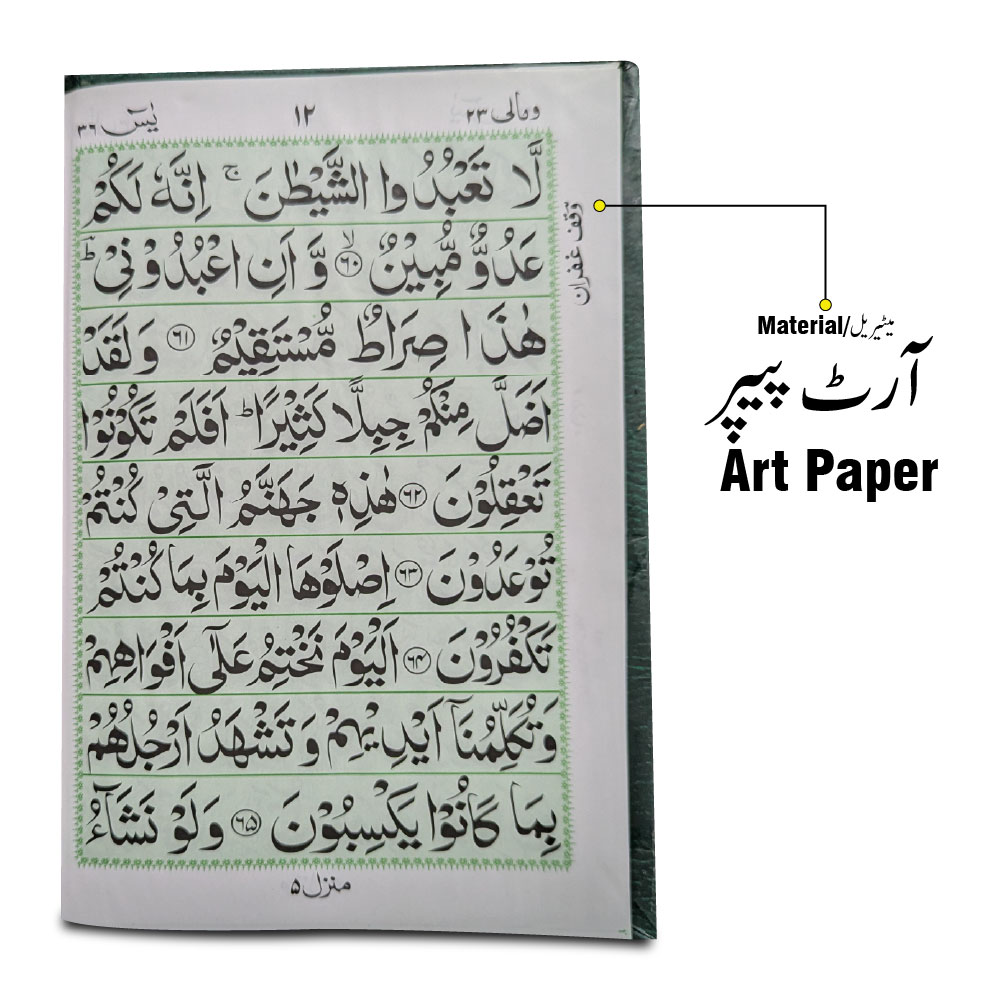 ومالی ۲۳
۱۲
یٰسٓ ۳۶
لَّا تَعْبُدُوا الشَّيْطٰنَ ۚ اِنَّهٗ لَكُمْ
عَدُوٌّ مُّبِيْنٌ ۙ‏﴿۶۰﴾ وَّ اَنِ اعْبُدُوْنِيْ ؕ
هٰذَا صِرَاطٌ مُّسْتَقِيْمٌ ﴿۶۱﴾ وَلَقَدْ
اَضَلَّ مِنْكُمْ جِبِلًّا كَثِيْرًا ؕ اَفَلَمْ تَكُوْنُوْا
تَعْقِلُوْنَ ﴿۶۲﴾ هٰذِهٖ جَهَنَّمُ الَّتِيْ كُنْتُمْ
تُوْعَدُوْنَ ﴿۶۳﴾ اِصْلَوْهَا الْيَوْمَ بِمَا كُنْتُمْ
تَكْفُرُوْنَ ﴿۶۴﴾ اَلْيَوْمَ نَخْتِمُ عَلٰٓى اَفْوَاهِهِمْ
وَتُكَلِّمُنَاۤ اَيْدِيْهِمْ وَتَشْهَدُ اَرْجُلُهُمْ
بِمَا كَانُوْا يَكْسِبُوْنَ ﴿۶۵﴾ وَلَوْ نَشَآءُ
منزل ۵
وقف غفران
Material/میٹیریل
آرٹ پیپر
Art Paper